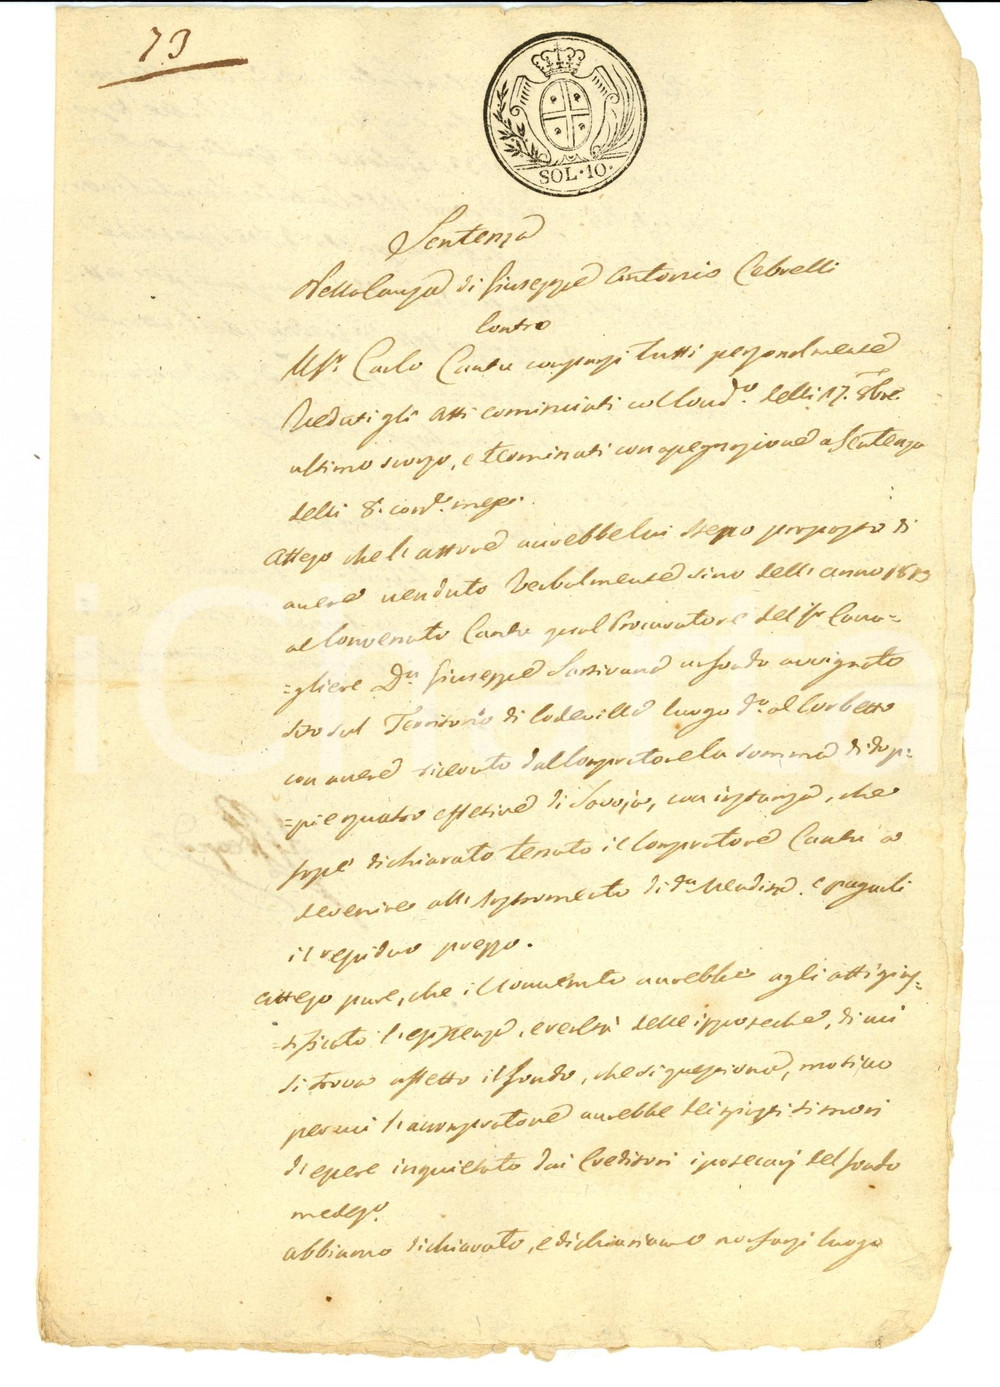 73
SOL·10·
Sentenza
Nella Causa di Giuseppe Antonio Cebrelli
Contro
Carlo Cantu comparsi tutti personalmente
Veduti gli Atti cominciati col Decr.º delli 17. 8bre
ultimo scorso, e terminati con assegnazione a Sentenza
delli 8. cor.e mese.
Atteso che l'attore avrebbe lui stesso proposto di
avere venduto Verbalmente sino dell'anno 1813
al Convenuto Cantu qual Procuratore del Sr Cava=
=gliere Dn Giuseppe un fondo avvignato
sito sul Territorio di Codevilla luogo d.º al Corbetto
con avere ricevuto dal Compratore la somma di dop=
=pie quattro effettive di Savoja, con instanza, che
fosse dichiarato tenuto il Compratore Cantu a
devenire all'Instromento di d.a Vendita. e pagarli
il residuo prezzo.
Atteso pure, che il Convenuto avrebbe agli atti gius=
=tificato l'esistenza, e realtà delle ippoteche, di cui
si trova affetto il fondo, che si questiona, motivo
per cui l'accompratore avrebbe dei giusti timori
di essere inquietato dai Creditori ipotecarj del fondo
medes.º
abbiamo dichiarato, e dichiariamo non farsi luogo